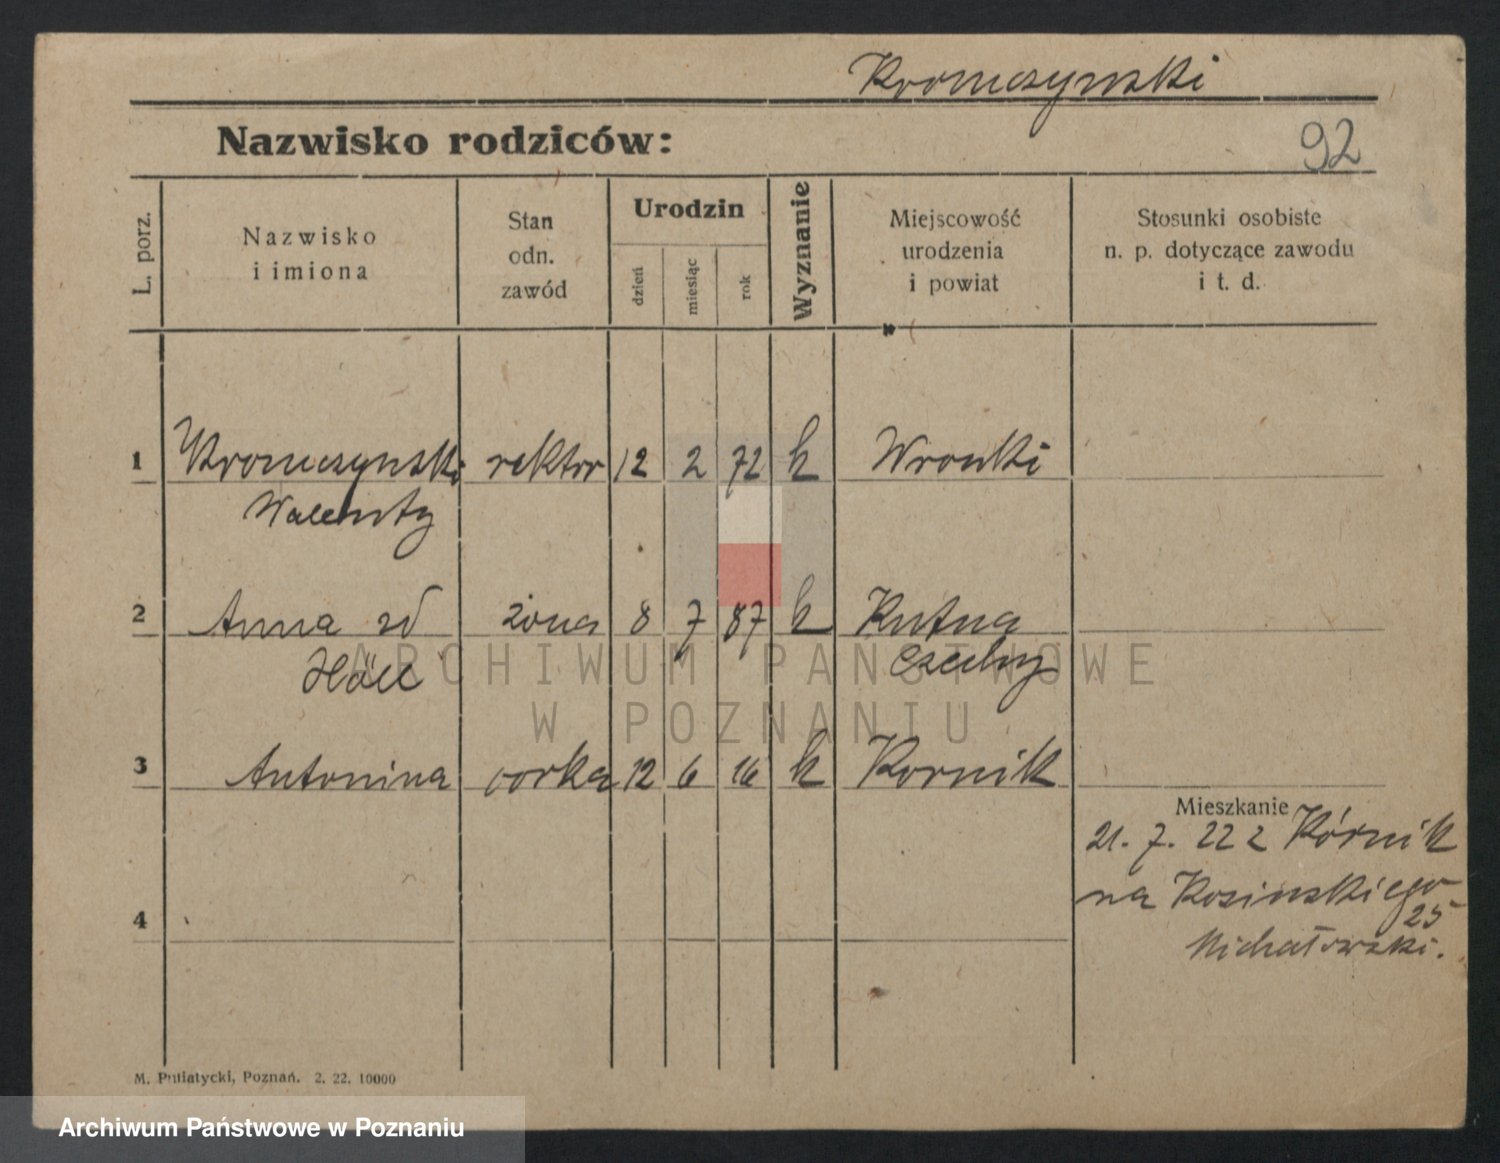 Kromczynski
Nazwisko rodziców:
92
L. porz.
Nazwisko
i imiona
Stan
odn.
zawód
Urodzin
dzień
miesiąc
rok
Wyznanie
Miejscowość
urodzenia
i powiat
Stosunki osobiste
n. p. dotyczące zawodu
i t. d.
1 Kromczynski rektor 12 2 72 k Wronki
Walenty
2 Anna zd żona 8 7 87 k Kutna
Czechy
ARCHIWUM PAŃSTWOWE
W POZNANIU
3 Antonina corka 12 6 16 k Kornik
Mieszkanie
21. 7. 22 z Kórnik
na Kosinskiego
25
Michałowski.
4
M. Putiatycki, Poznań. 2. 22. 10000
Archiwum Państwowe w Poznaniu